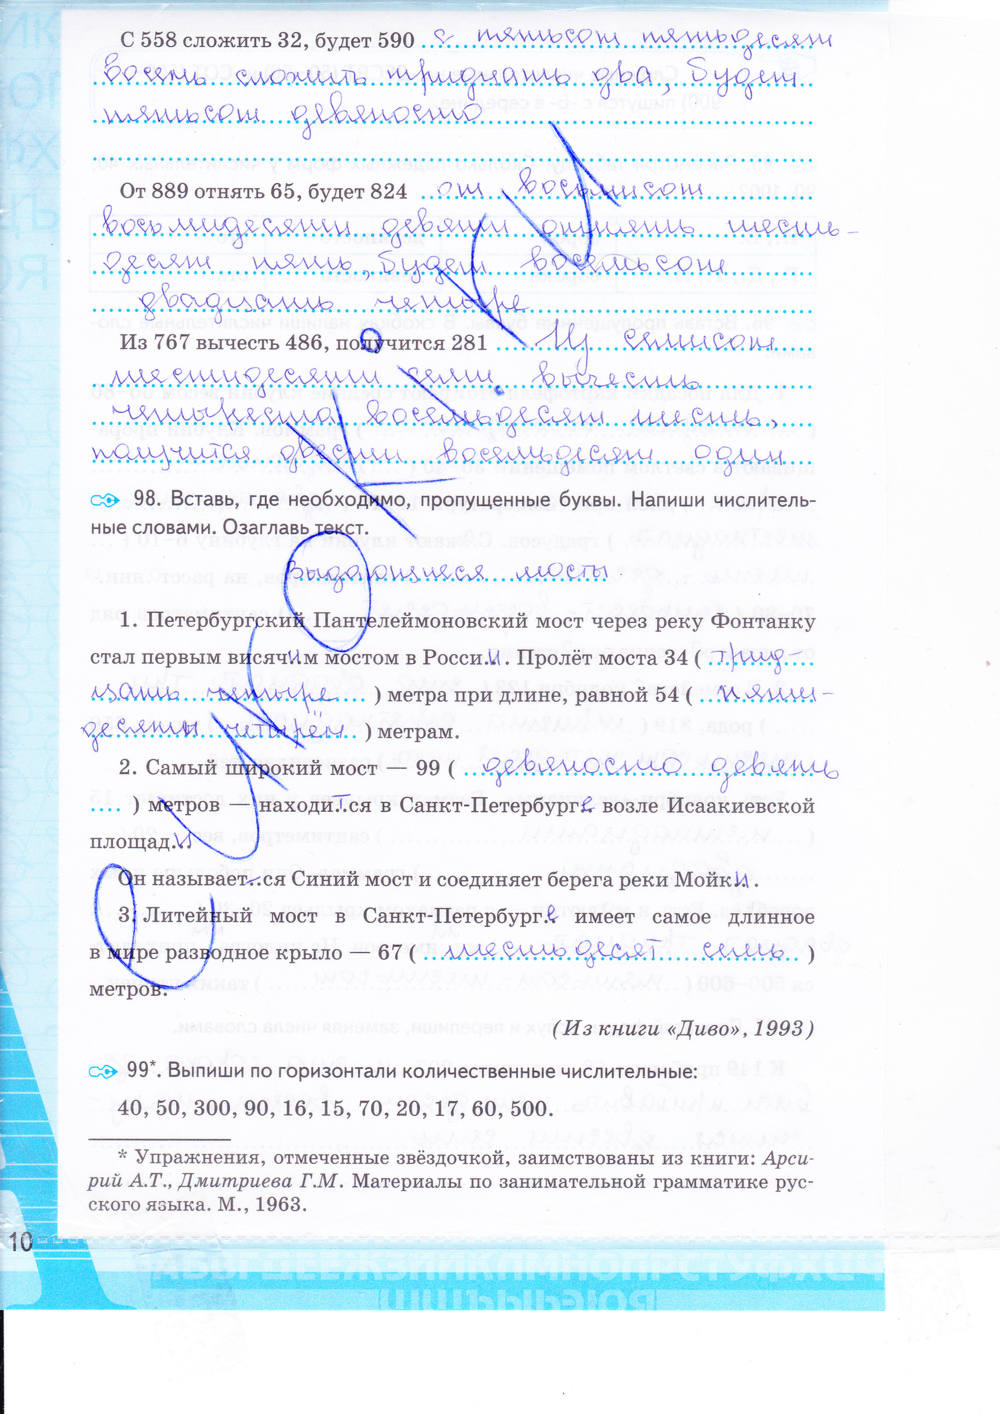 С 558 сложить 32, будет 590 с пятьсот пятьдесят
восемь сложить тридцать два, будет
пятьсот девяносто
От 889 отнять 65, будет 824 от восьмисот
восьмидесяти девяти отнять шесть-
десят пять, будет восемьсот
двадцать четыре
Из 767 вычесть 486, получится 281 Из семисот
шестидесяти семи вычесть
четыреста восемьдесят шесть,
получится двести восемьдесят один
98. Вставь, где необходимо, пропущенные буквы. Напиши числитель-
ные словами. Озаглавь текст.
Выдающиеся мосты
1. Петербургский Пантелеймоновский мост через реку Фонтанку
стал первым висячим мостом в России. Пролёт моста 34 ( трид-
цать четыре ) метра при длине, равной 54 ( пяти-
десяти четырём ) метрам.
2. Самый широкий мост — 99 ( девяносто девять
) метров — находится в Санкт-Петербурге возле Исаакиевской
площади.
Он называет..ся Синий мост и соединяет берега реки Мойки.
3. Литейный мост в Санкт-Петербурге имеет самое длинное
в мире разводное крыло — 67 ( шестьдесят семь )
метров.
(Из книги «Диво», 1993)
99*. Выпиши по горизонтали количественные числительные:
40, 50, 300, 90, 16, 15, 70, 20, 17, 60, 500.
* Упражнения, отмеченные звёздочкой, заимствованы из книги: Арси-
рий А.Т., Дмитриева Г.М. Материалы по занимательной грамматике рус-
ского языка. М., 1963.
10